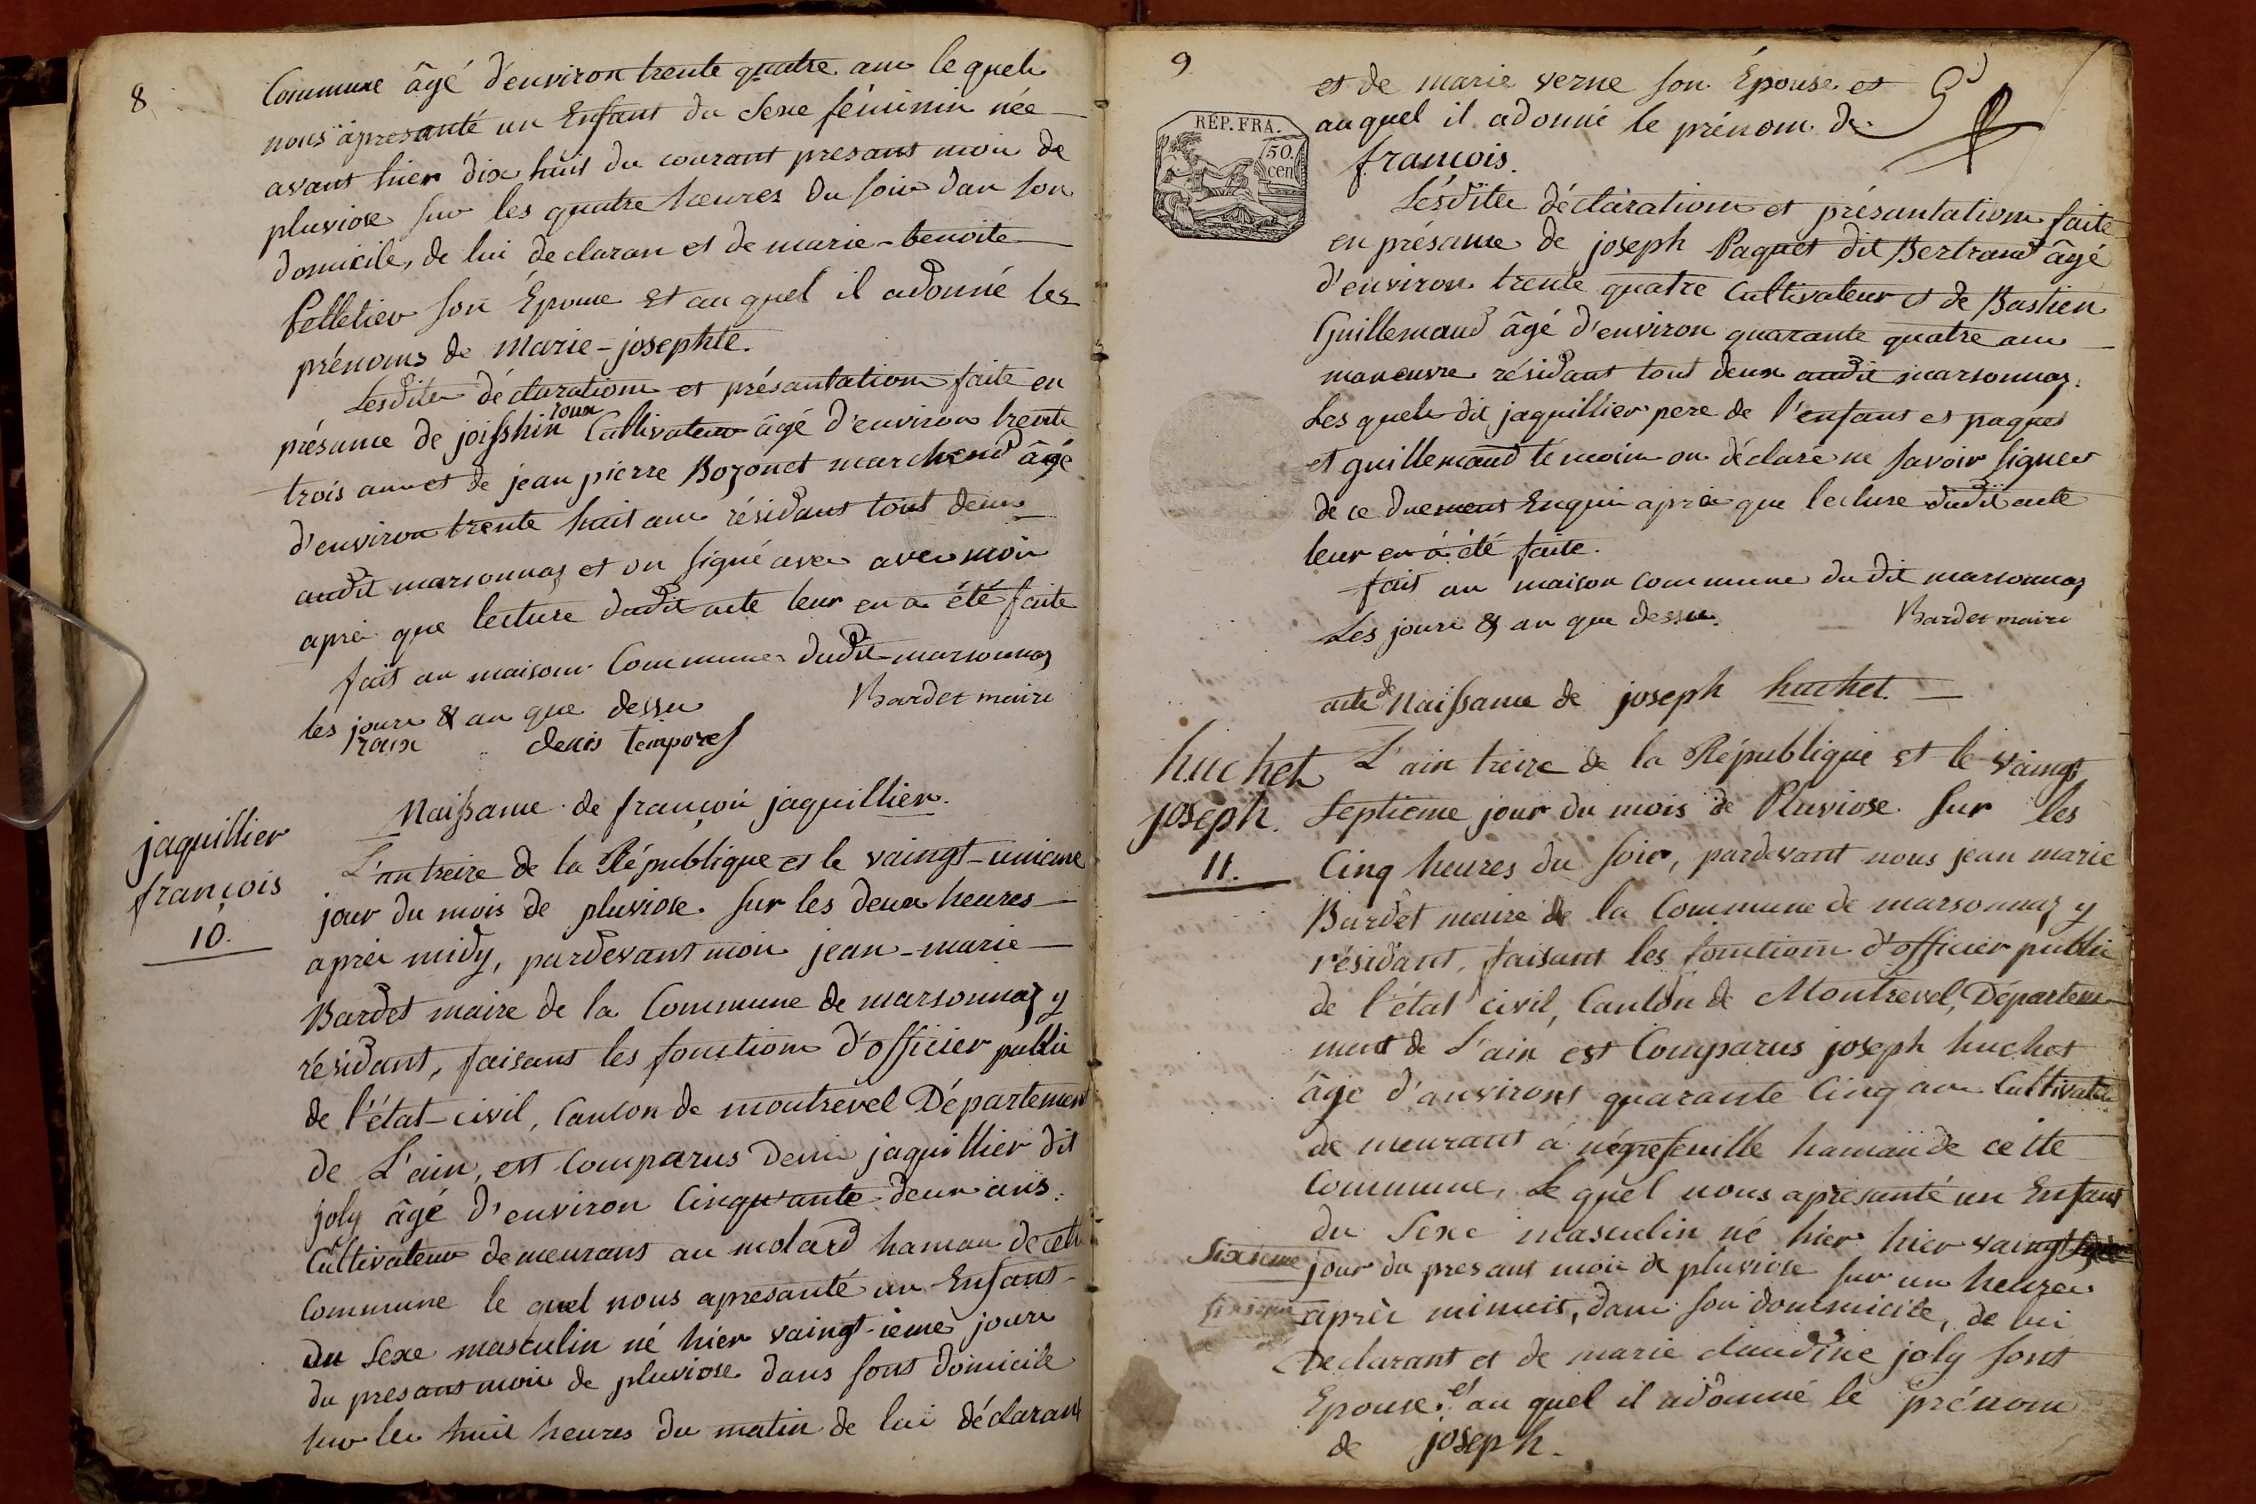 8
Commune âgé d'environ trente quatre ans le quels
nous apresanté un Enfant du Sexe féminin née
avant hier dix huit du courant presant mois de
pluviose sur les quatre heures du soir dan son
domicile, de lui declaran et de marie-benoite
Pelletier son Épouse et au quel il adonné les
prénoms de Marie-josephte.
Lesdites déclarations et présantations faite en
présance de joisshin roux Cultivateur âgé d'environ trente
trois ans et de jean pierre Bozonet marchend âgé
d'environ trente huit ans résidant tout deux
audit marsonnaz et on signé avec avec moi
après que lecture dudit acte leur en a été faite
fait au maison Commune dudit marsonnaz
les jours & an que dessu
Bardet maire
roux
denis tempores
jaquillier
françois
10.
Naissance de françois jaquillier.
L'an treize de la République et le vaingt-unieme
jour du mois de pluviose sur les deux heures
après midy, pardevant moi jean-marie
Bardet maire de la Commune de marsonnaz y
résidant, faisant les fonctions d'officier public
de l'état-civil, Canton de montrevel Département
de L'ain, est Comparus denis jaquillier dit
joly âgé d'environ Cinquante deux ans
Cultivateur demeurans au molard hamau de cete
Commune le quel nous apresanté un Enfant
du Sexe masculin né hier vaingt-ieme jours
du presant mois de pluviose dans sont domicile
sur les huit heures du matin de lui déclarant
9
et de marie verne son Épouse et
auquel il adonné le prénom de
françois.
RÉP. FRA.
50.
cen
Lesdites déclarations et présantations faite
en présance de joseph Paquet dit Bertrand âgé
d'environ trente quatre Cultivateur et de Bastien
Guillemaud âgé d'environ quarante quatre ans
maneuvre résidant tout deux audit marsonnaz.
Les quels dit jaquillier pere de l'enfant et paquet
et guillemaud témoin on déclaré ne savoir signer
de ce duement Enquis après que lecture dudit acte
leur en à été faite.
fait au maison commune du dit marsonnaz
Les jours & an que dessu.
Bardet maire
acte de Naissance de joseph huchet.
huchet
joseph.
11.
L'ain treize de la République et le vaingt
Septieme jour du mois de Pluviose sur les
Cinq heures du soir, pardevant nous jean marie
Bardet maire de la Commune de marsonnaz y
résidant, faisant les fonctions d'officier public
de l'état civil, Canton de Montrevel, Départem
ment de L'ain est Comparus joseph huchet
âge d'environt quarante Cinq ans Cultivateur
de meurant à négrefeuille hamau de cette
Commune, Le quel nous apresanté un Enfant
du Sexe masculin né hier hier vaingt
Sixieme jour du presant mois de pluviose sur un heure
après minuit, dans son dommicile, de lui
declarant et de marie claudine joly sont
Epouse et au quel il adonné le prénom
de joseph.